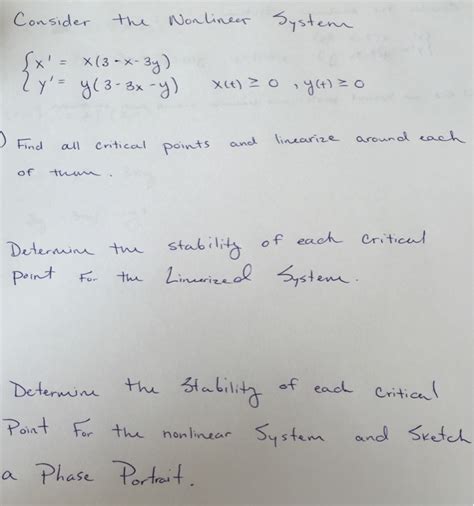 Consider the Nonlinear System
{ x' = x(3-x-3y)
y' = y(3-3x-y) x(t) ≥ 0 , y(t) ≥ 0
) Find all critical points and linearize around each
of them.
Determine the stability of each critical
point For the Linearized System.
Determine the Stability of each critical
Point For the nonlinear System and Sketch
a Phase Portrait.